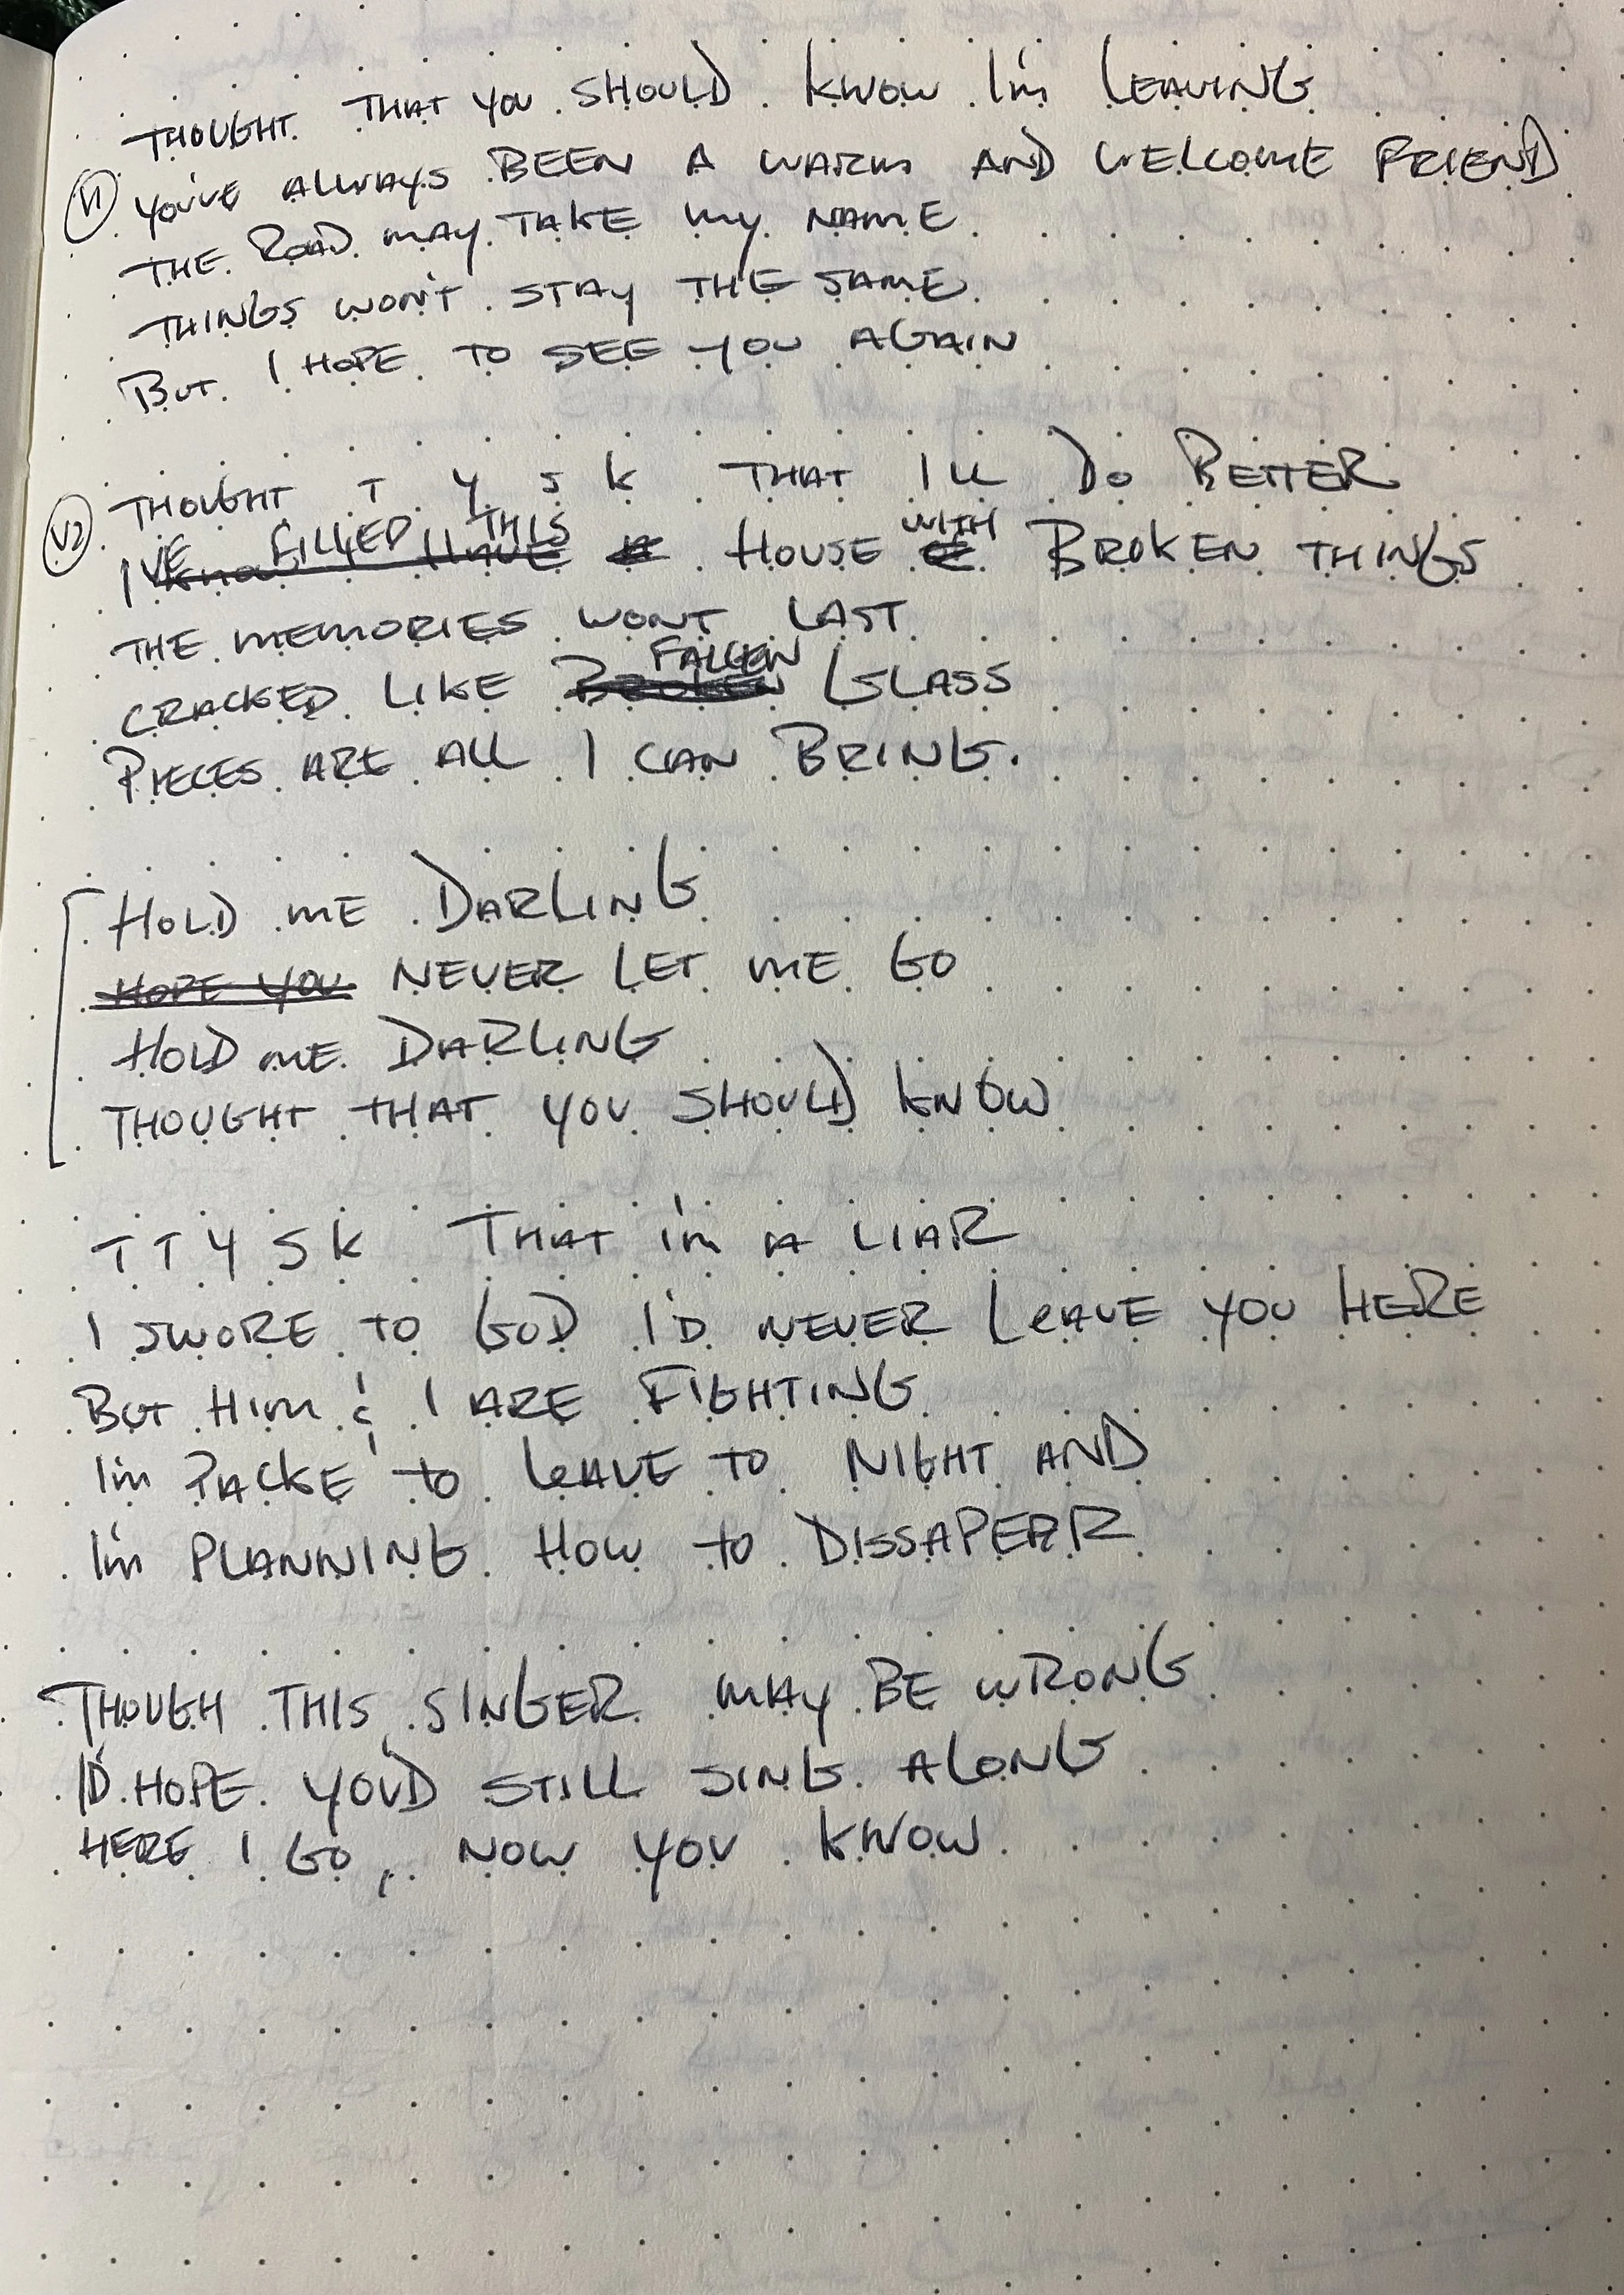 THOUGHT THAT YOU SHOULD KNOW I'm LEAVING
V1 YOU'VE ALWAYS BEEN A WARM AND WELCOME FRIEND
THE ROAD MAY TAKE MY NAME
THINGS WON'T STAY THE SAME
BUT I HOPE TO SEE YOU AGAIN
THOUGHT T Y S K THAT ILL DO BETTER
V2 I'VE FILLED THIS HOUSE WITH BROKEN THINGS
THE MEMORIES WONT LAST
CRACKED LIKE BROKEN FALLEN GLASS
PIECES ARE ALL I CAN BRING.
HOLD ME DARLING
HOPE YOU NEVER LET ME GO
HOLD ME DARLING
THOUGHT THAT YOU SHOULD KNOW
T T Y S K THAT I'm A LIAR
I SWORE TO GOD I'D NEVER LEAVE YOU HERE
BUT HIM & I ARE FIGHTING
I'm PACKE' TO LEAVE TO NIGHT AND
I'm PLANNING HOW TO DISSAPEAR
THOUGH THIS SINGER MAY BE WRONG
I'D HOPE YOU'D STILL SING ALONG
HERE I GO, NOW YOU KNOW